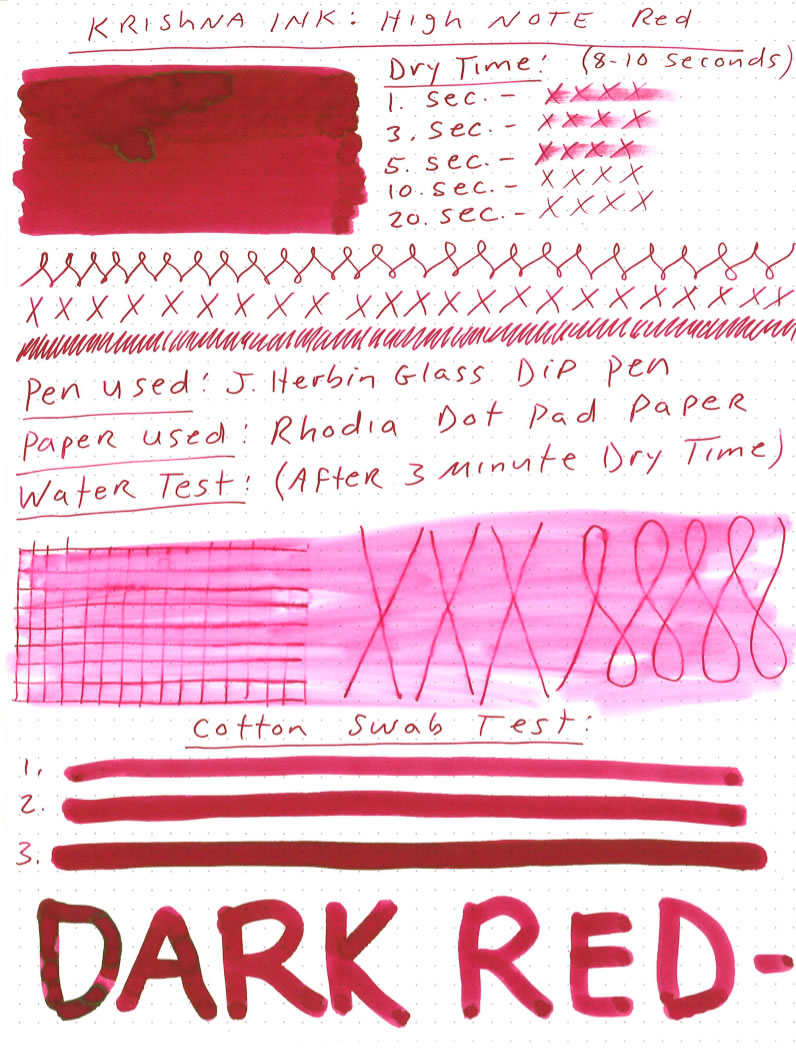 KRISHNA INK: High NOTE Red
Dry Time: (8-10 seconds)
1. sec. - x x x x
3. sec. - x x x x
5. sec. - x x x x
10. sec. - x x x x
20. sec. - x x x x
X X X X X X X X X X X X X X X X X X X X X
Pen used: J. Herbin Glass Dip Pen
Paper used: Rhodia Dot Pad Paper
Water Test: (After 3 minute Dry Time)
X X X
Cotton Swab Test:
1.
2.
3.
DARK RED-